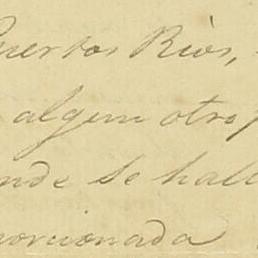 Puertos Rios,
algem otro
nde se hall
porcionada